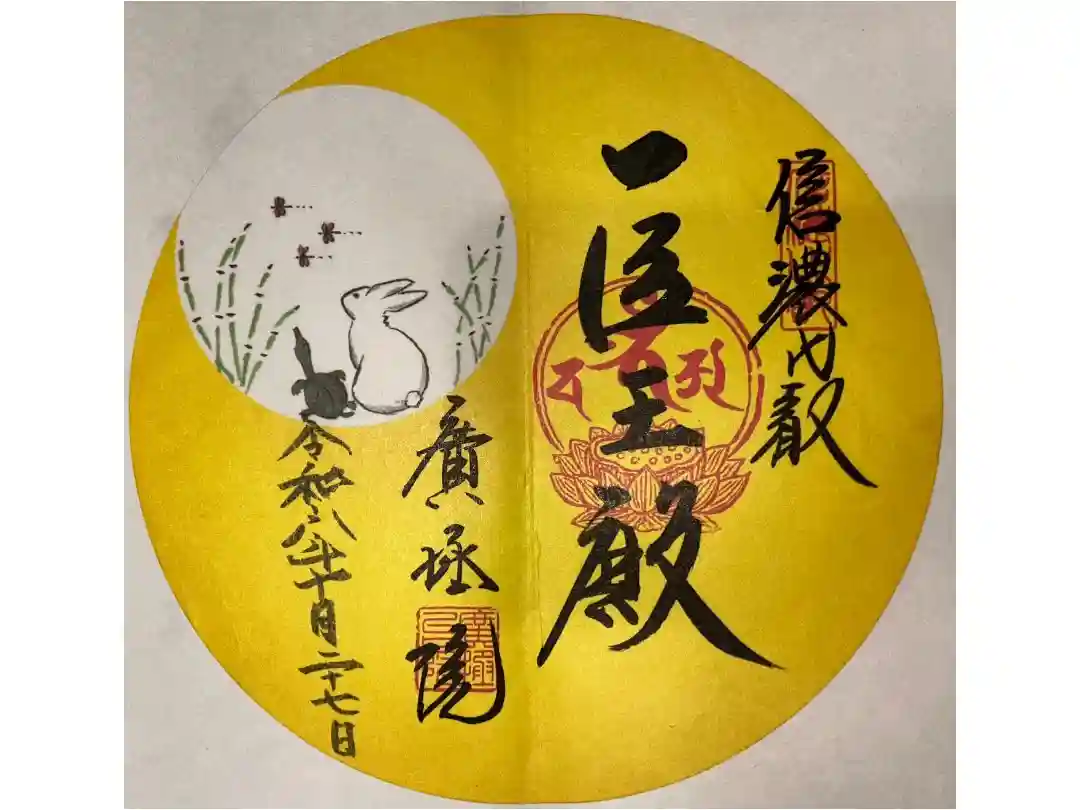 信濃比叡
医王殿
廣拯院
令和六年十月二十七日